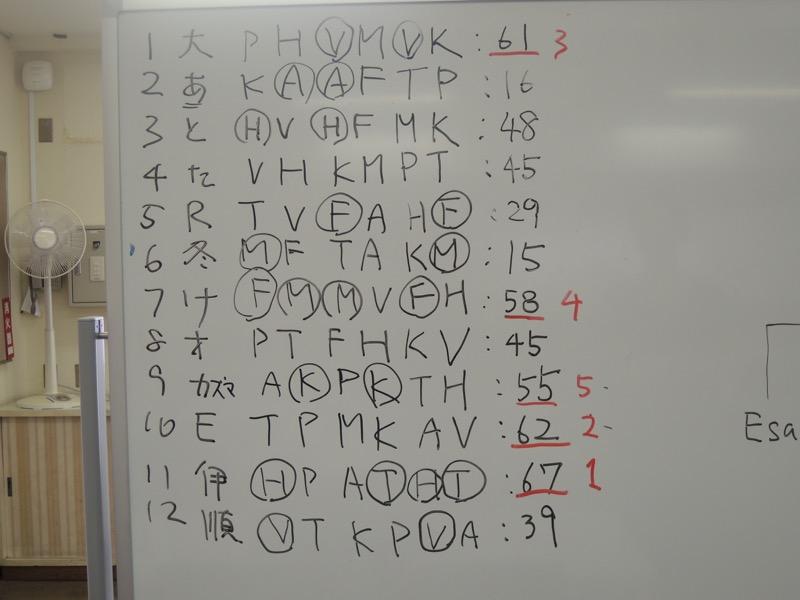 1 大 P H V M V K : 61 3
2 あ K A A F T P : 16
3 と H V H F M K : 48
4 た V H K M P T : 45
5 R T V F A H F : 29
6 冬 M F T A K M : 15
7 け F M M V F H : 58 4
8 オ P T F H K V : 45
9 カズマ A K P K T H : 55 5
10 E T P M K A V : 62 2
11 伊 H P A T H T : 67 1
12 順 V T K P V A : 39
Esa